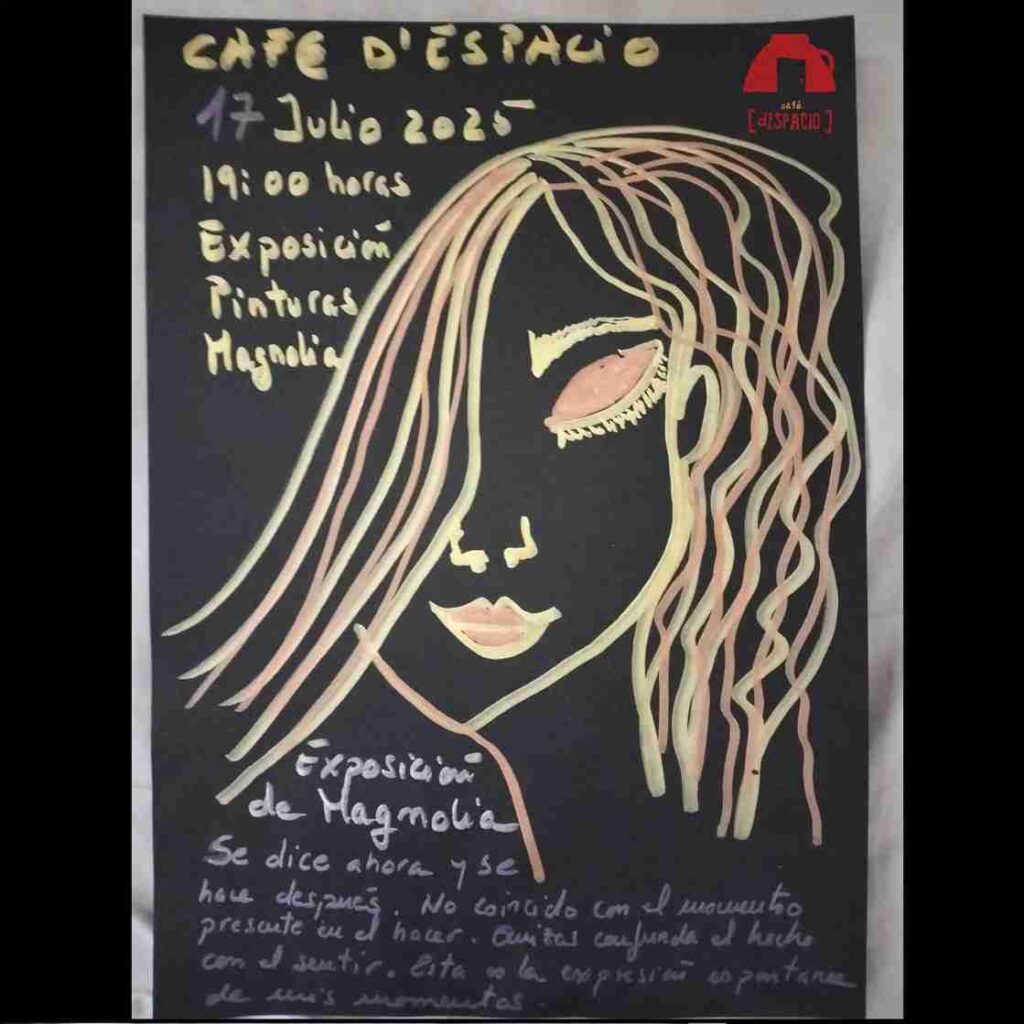 CAFE D'ESPACIO
17 Julio 2025
19:00 horas
Exposición
Pinturas
Magnolia
café
[dESPACIO]
Exposición
de Magnolia
Se dice ahora y se
hace después. No coincido con el momento
presente en el hacer. Quizas confunda el hecho
con el sentir. Esta es la expresión espontanea
de mis momentos.